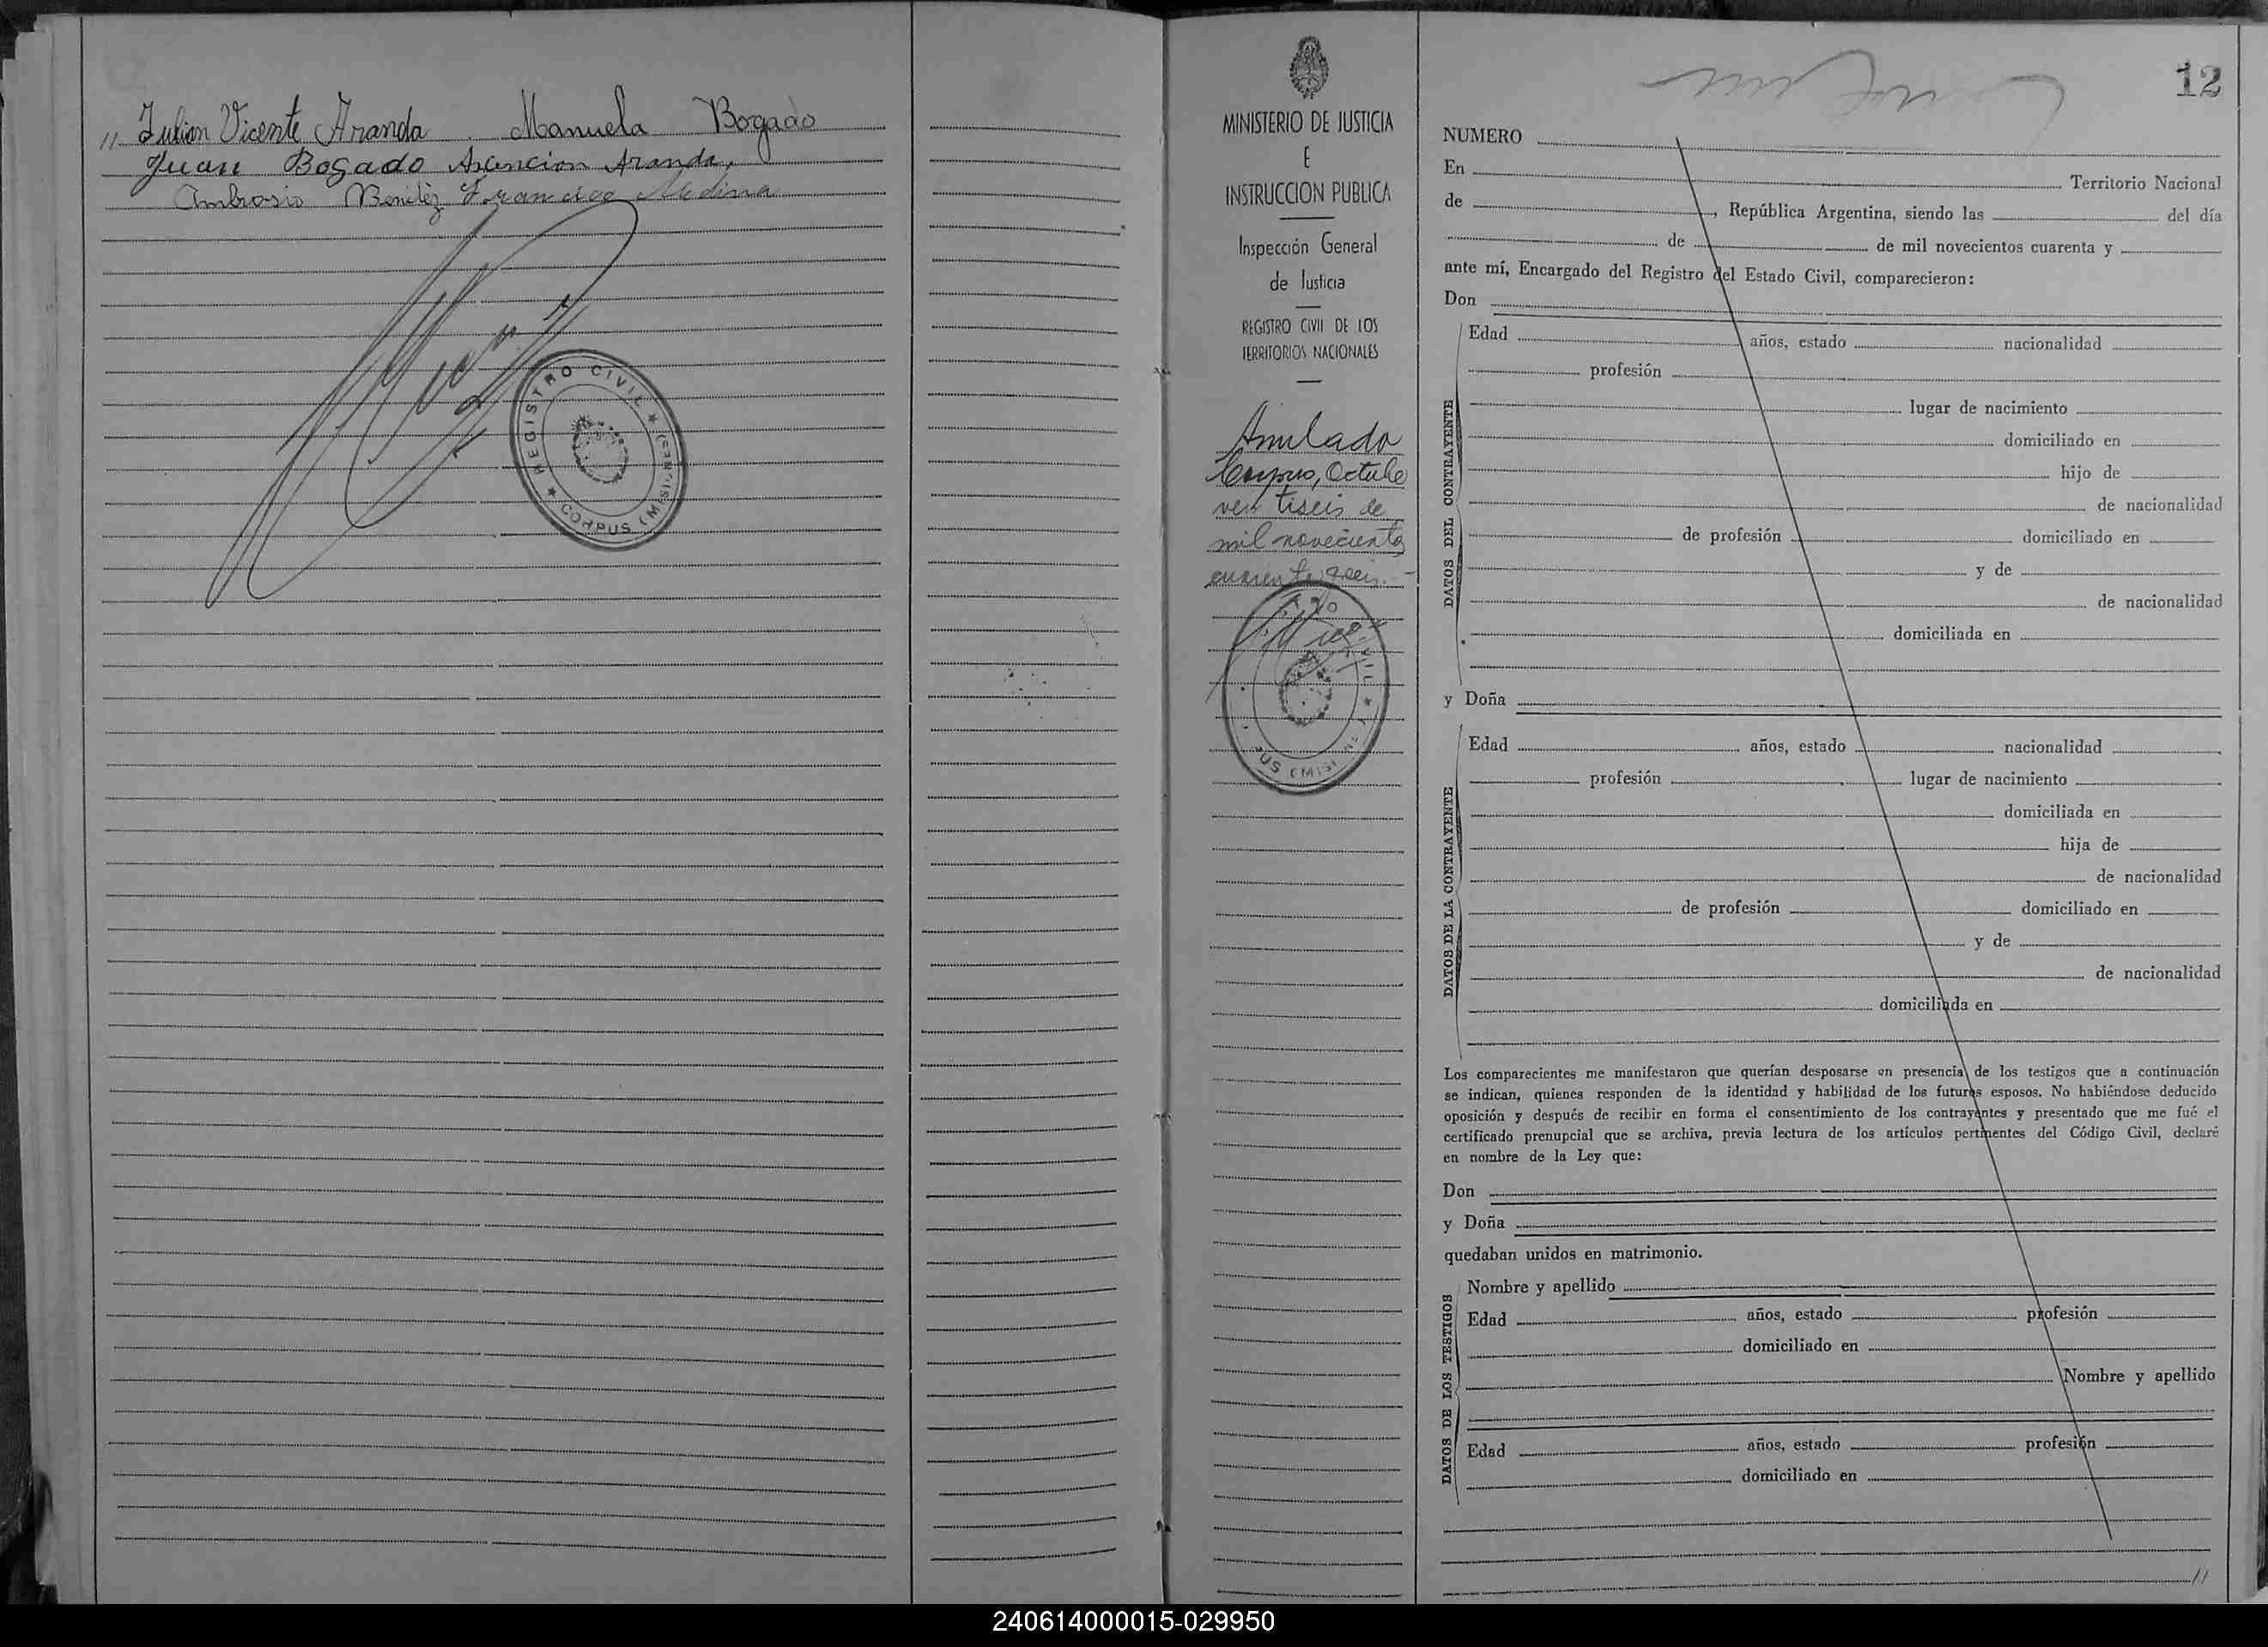 " Julian Vicente Aranda Manuela Bogado
Juan Bogado Asencion Aranda,
Ambrosio Benitez Francisco Medina
★ REGISTRO CIVIL ★
CORPUS (MISIONES)
MINISTERIO DE JUSTICIA
E
INSTRUCCION PUBLICA
Inspección General
de Justicia
REGISTRO CIVIL DE LOS
TERRITORIOS NACIONALES
Anulado
Corpus, Octubre
ventiseis de
mil novecientos
cuarenta y seis.-
12
NUMERO
En Territorio Nacional
de , República Argentina, siendo las del día
de de mil novecientos cuarenta y
ante mí, Encargado del Registro del Estado Civil, comparecieron:
Don
DATOS DEL CONTRAYENTE
Edad años, estado nacionalidad
profesión
lugar de nacimiento
domiciliado en
hijo de
de nacionalidad
de profesión domiciliado en
y de
de nacionalidad
domiciliada en
y Doña
DATOS DE LA CONTRAYENTE
Edad años, estado nacionalidad
profesión lugar de nacimiento
domiciliada en
hija de
de nacionalidad
de profesión domiciliado en
y de
de nacionalidad
domiciliada en
Los comparecientes me manifestaron que querían desposarse en presencia de los testigos que a continuación
se indican, quienes responden de la identidad y habilidad de los futuros esposos. No habiéndose deducido
oposición y después de recibir en forma el consentimiento de los contrayentes y presentado que me fué el
certificado prenupcial que se archiva, previa lectura de los artículos pertinentes del Código Civil, declaré
en nombre de la Ley que:
Don
y Doña
quedaban unidos en matrimonio.
DATOS DE LOS TESTIGOS
Nombre y apellido
Edad años, estado profesión
domiciliado en
Nombre y apellido
Edad años, estado profesión
domiciliado en
//
240614000015-029950